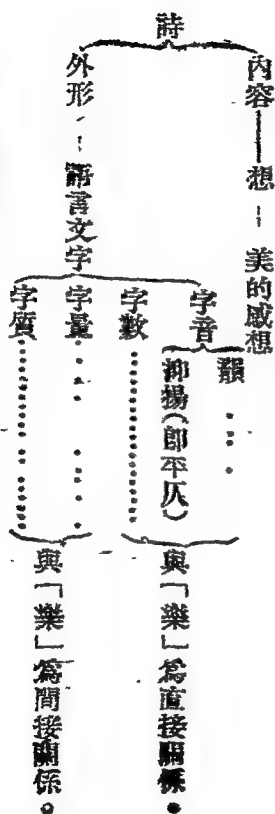 詩
內容——想——美的感想
外形——語言文字
字音
韻……
抑揚(即平仄)
字數…………
與「樂」為直接關係。
字量……
字質…………
與「樂」為間接關係。